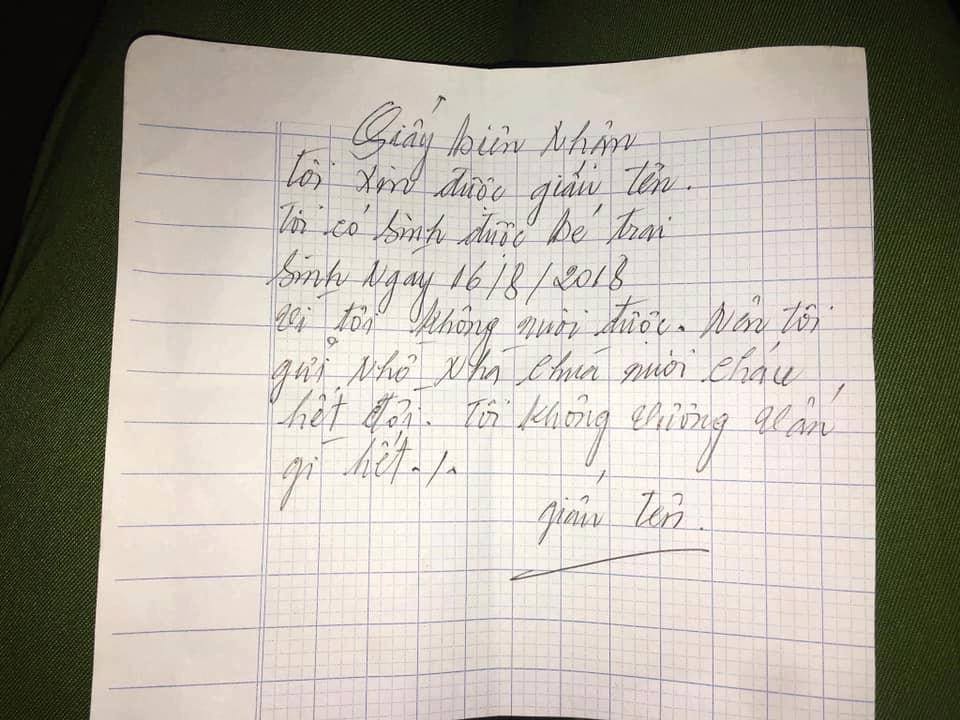 Giấy biên Nhận
Tôi xin được giấu tên.
Tôi có sinh được bé trai
sinh Ngày 16/8/2018
Vì tôi không nuôi được. Nên tôi
gửi Nhờ Nhà chùa nuôi cháu
hết đời. Tôi không vướng vấn
gì hết./.
giấu tên.